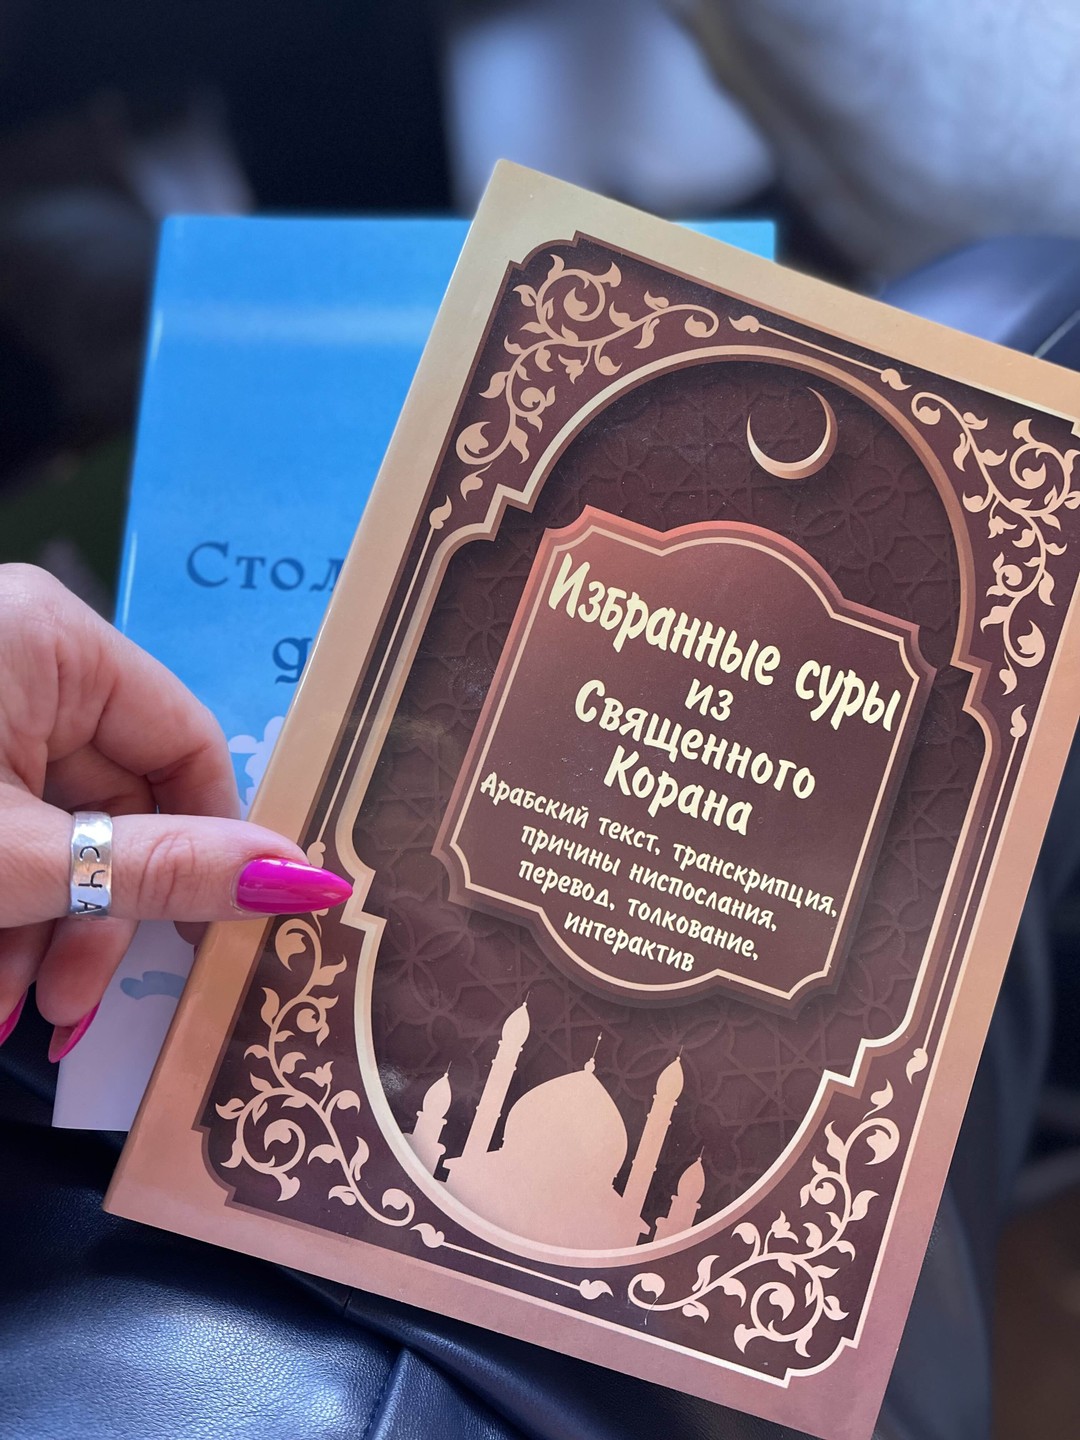 Избранные суры
из
Священного
Корана
Арабский текст, транскрипция,
причины ниспослания,
перевод, толкование,
интерактив